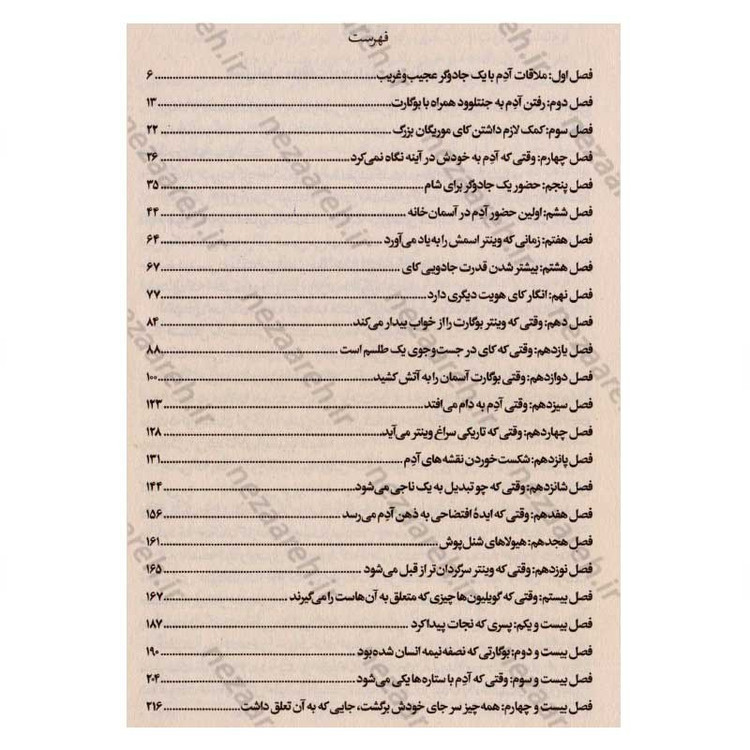 فهرست
فصل اول: ملاقات آدِم با یک جادوگر عجیب‌وغریب........ ۶
فصل دوم: رفتن آدِم به جنتلوود همراه با بوگارت........ ۱۳
فصل سوم: کمک لازم داشتن کای موریگان بزرگ........ ۲۲
فصل چهارم: وقتی که آدِم به خودش در آینه نگاه نمی‌کرد........ ۲۶
فصل پنجم: حضور یک جادوگر برای شام........ ۳۵
فصل ششم: اولین حضور آدِم در آسمان خانه........ ۴۴
فصل هفتم: زمانی که وینتر اسمش را به یاد می‌آورد........ ۶۴
فصل هشتم: بیشتر شدن قدرت جادویی کای........ ۶۷
فصل نهم: انگار کای هویت دیگری دارد........ ۷۷
فصل دهم: وقتی که وینتر بوگارت را از خواب بیدار می‌کند........ ۸۴
فصل یازدهم: وقتی که کای در جست‌وجوی یک طلسم است........ ۸۸
فصل دوازدهم: وقتی بوگارت آسمان را به آتش کشید........ ۱۰۰
فصل سیزدهم: وقتی آدِم به دام می‌افتد........ ۱۲۳
فصل چهاردهم: وقتی که تاریکی سراغ وینتر می‌آید........ ۱۲۸
فصل پانزدهم: شکست خوردن نقشه‌های آدِم........ ۱۳۱
فصل شانزدهم: وقتی که چو تبدیل به یک ناجی می‌شود........ ۱۴۴
فصل هفدهم: وقتی که ایدهٔ افتضاحی به ذهن آدِم می‌رسد........ ۱۵۶
فصل هجدهم: هیولاهای شنل‌پوش........ ۱۶۱
فصل نوزدهم: وقتی که وینتر سرگردان‌تر از قبل می‌شود........ ۱۶۵
فصل بیستم: وقتی که گویلیون‌ها چیزی که متعلق به آن‌هاست را می‌گیرند........ ۱۶۷
فصل بیست و یکم: پسری که نجات پیدا کرد........ ۱۸۷
فصل بیست و دوم: بوگارتی که نصفه نیمه انسان شده بود........ ۱۹۰
فصل بیست و سوم: وقتی که آدِم با ستاره‌ها یکی می‌شود........ ۲۰۴
فصل بیست و چهارم: همه چیز سر جای خودش برگشت، جایی که به آن تعلق داشت........ ۲۱۶
nezaareh.ir